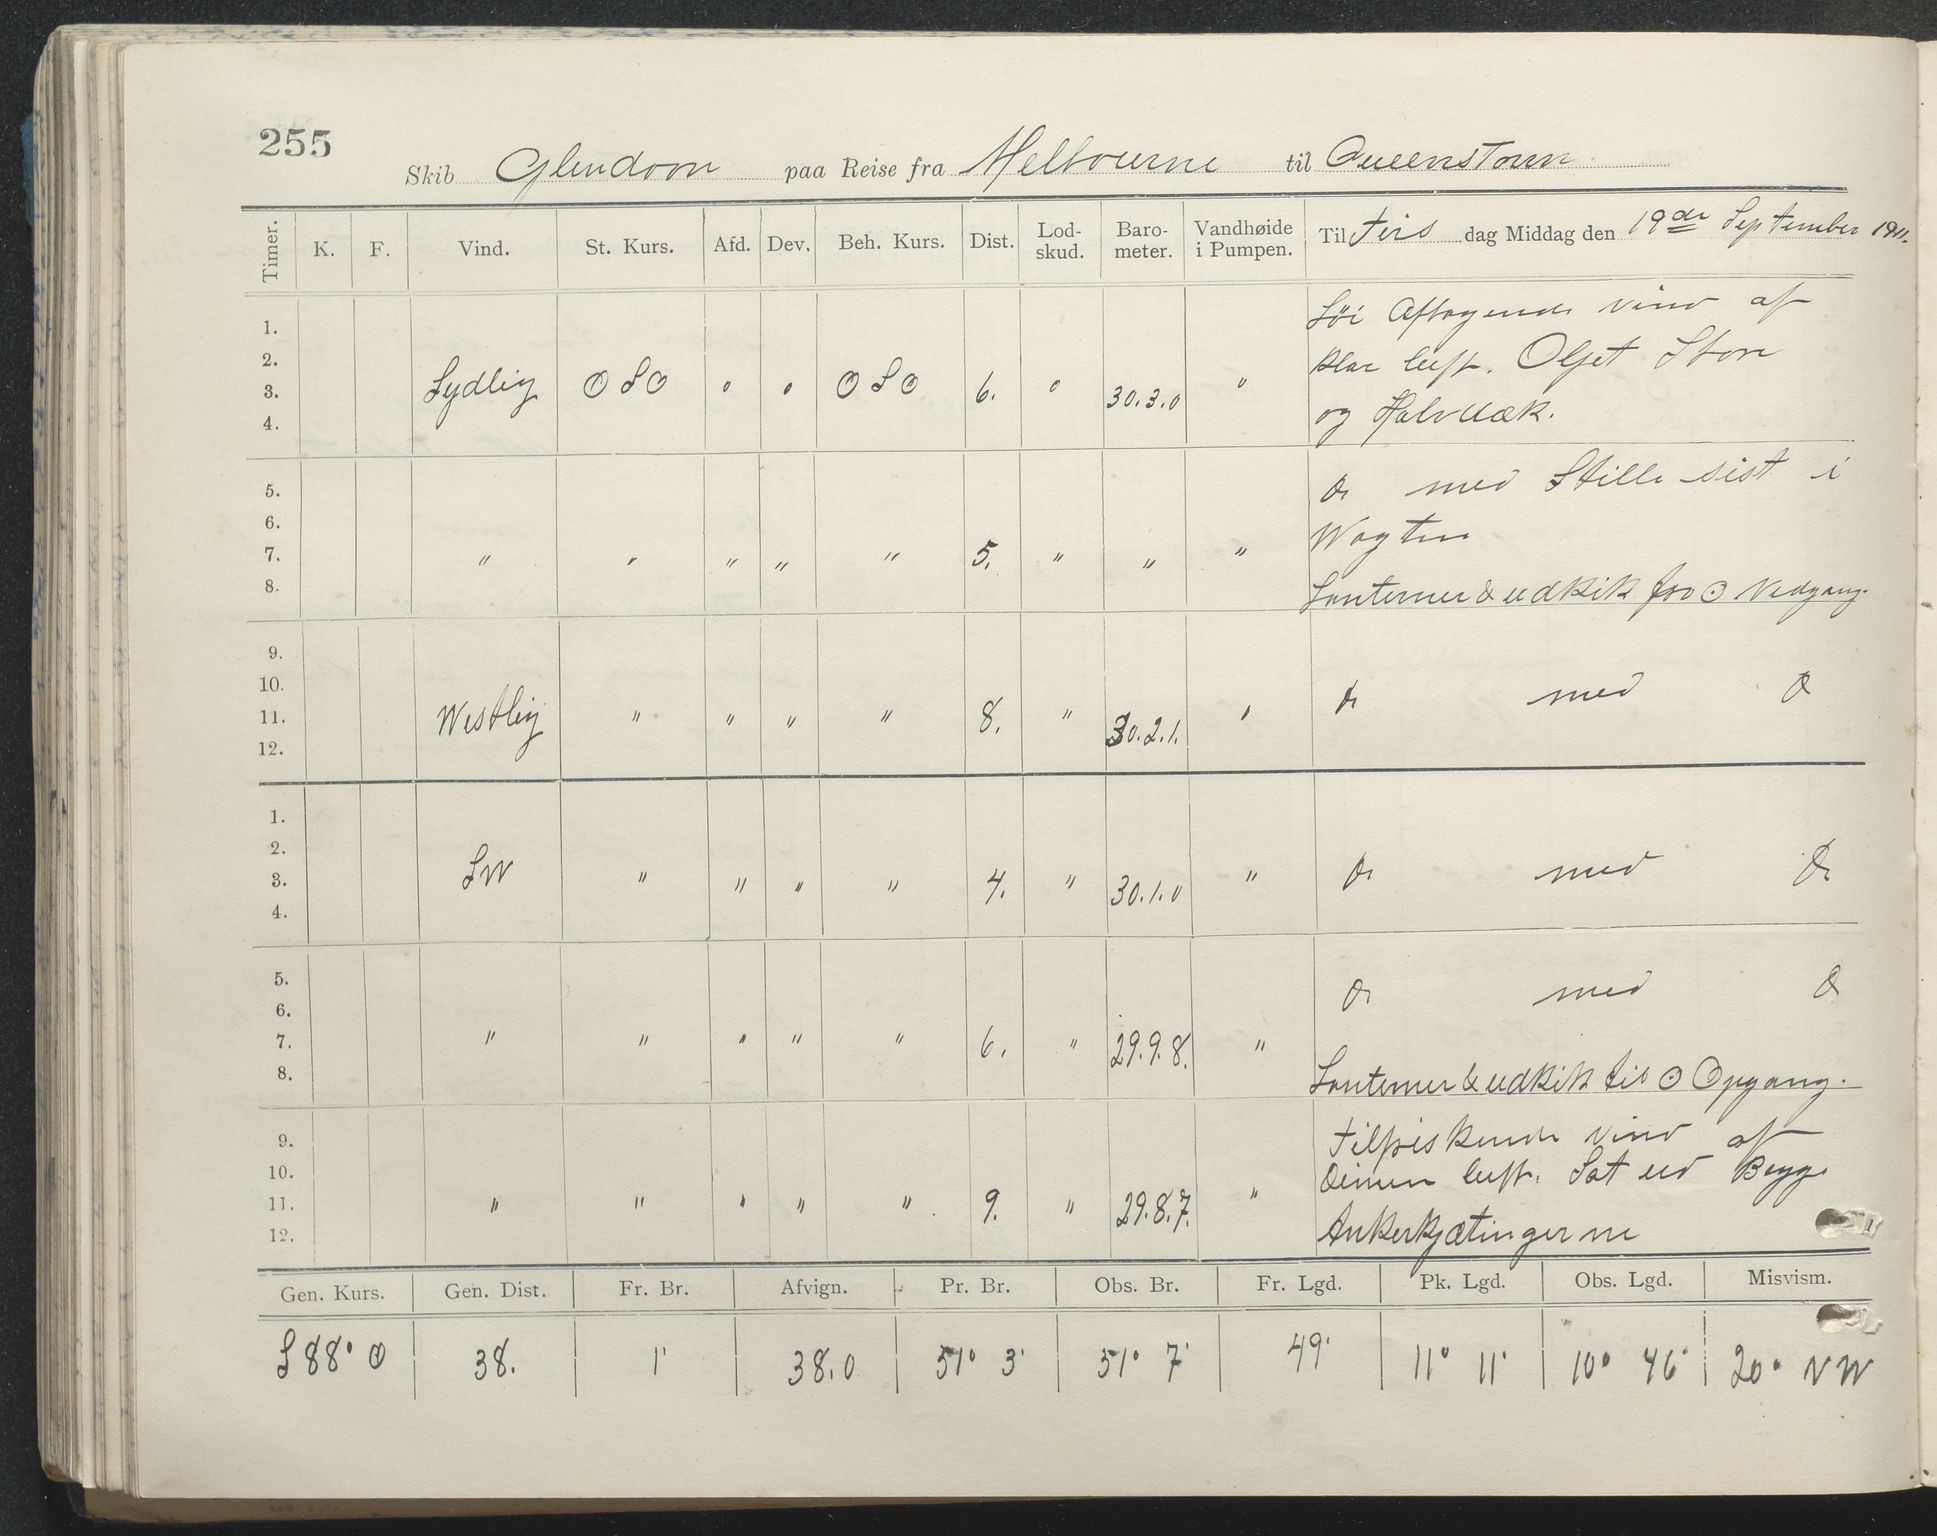 255
Skib Glendoon paa Reise fra Melbourne til Queenstown
Timer. K. F. Vind. St. Kurs. Afd. Dev. Beh. Kurs. Dist. Lod-skud. Baro-meter. Vandhøide i Pumpen. Til Tirs dag Middag den 19de September 1911.
1.
2.
3. Sydlig OSO " " OSO 6. " 30.3.0 "
4.
Løi Aftagende vind af
klar luft. Oljet Store
og Halvdæk.
5.
6.
7. " " " " " 5. " " "
8.
Do med Stille sist i
Wagten
Lanterner & udkik fra ☉ Nedgang.
9.
10.
11. Westlig " " " " 8. " 30.2.1. "
12.
Do med Do
1.
2.
3. SW " " " " 4. " 30.1.0 "
4.
Do med Do
5.
6.
7. " " " " " 6. " 29.9.8. "
8.
Do med Do
Lanterner & udkik til ☉ Opgang.
9.
10.
11. " " " " " 9. " 29.8.7. "
12.
Tilfriskende vind af
Dimen luft. Sat ud Begge
Ankerkjætingerne
Gen. Kurs. Gen. Dist. Fr. Br. Afvign. Pr. Br. Obs. Br. Fr. Lgd. Pk. Lgd. Obs. Lgd. Misvism.
S 88° O 38. 1' 38.0 51° 3' 51° 7' 49' 11° 11' 10° 46' 20° NW